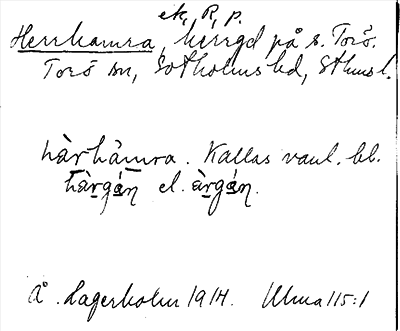 ek, R, p.
Herrhamra, herrgd på s. Torö.
Torö sn, Sotholms hd, Sthms l.
hàrhàmra. Kallas vanl. bl.
hàrgán el. àrgán.
Å. Lagerholm 1914. Ulma 115:1